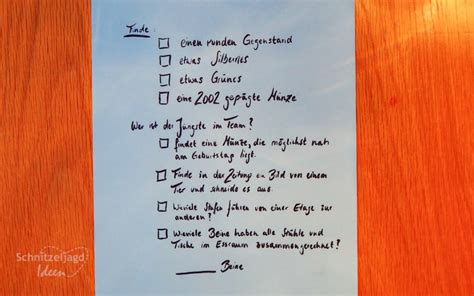 Finde:
☐ einen runden Gegenstand
☐ etwas Silbernes
☐ etwas Grünes
☐ eine 2002 geprägte Münze
Wer ist der Jüngste im Team?
☐ findet eine Münze, die möglichst nah
am Geburtstag liegt.
☐ Finde in der Zeitung ein Bild von einem
Tier und schneide es aus.
☐ Wieviele Stufen führen von einer Etage zur
anderen?
☐ Wieviele Beine haben alle Stühle und
Tische im Essraum zusammengerechnet?
____ Beine
Schnitzeljagd
Ideen